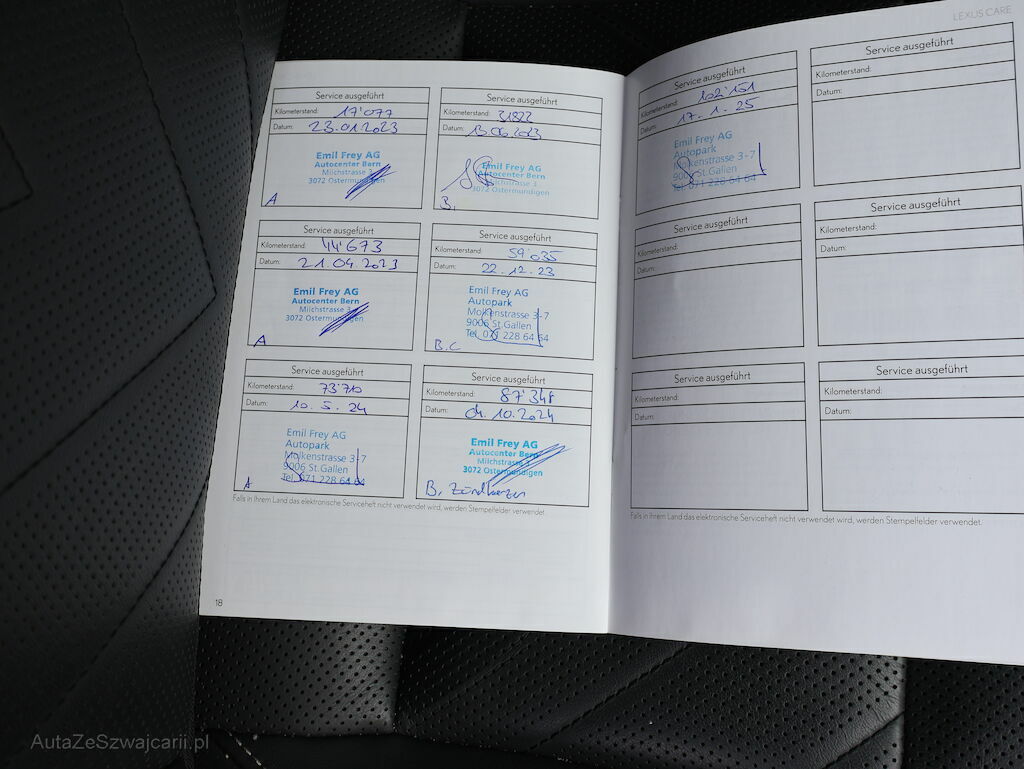 LEXUS CARE
Service ausgeführt
Kilometerstand: 17'077
Datum: 23.01.2023
Emil Frey AG
Autocenter Bern
Milchstrasse 3
3072 Ostermundigen
A
Service ausgeführt
Kilometerstand: 31822
Datum: 13.06.2023
Emil Frey AG
Autocenter Bern
Milchstrasse 3
3072 Ostermundigen
B.
Service ausgeführt
Kilometerstand: 44'673
Datum: 21.04.2023
Emil Frey AG
Autocenter Bern
Milchstrasse 3
3072 Ostermundigen
A
Service ausgeführt
Kilometerstand: 59'035
Datum: 22.12.23
Emil Frey AG
Autopark
Molkenstrasse 3-7
9006 St.Gallen
Tel. 071 228 64 64
B.C
Service ausgeführt
Kilometerstand:
Datum: 10. 5. 24
Emil Frey AG
Autopark
Molkenstrasse 3-7
9006 St.Gallen
Tel. 071 228 64 64
A
Service ausgeführt
Kilometerstand: 87'348
Datum: 04.10.2024
Emil Frey AG
Autocenter Bern
Milchstrasse 3
3072 Ostermundigen
B, Zündkerzen
Falls in Ihrem Land das elektronische Serviceheft nicht verwendet wird, werden Stempelfelder verwendet.
18
Service ausgeführt
Kilometerstand: 102'151
Datum: 17. 1. 25
Emil Frey AG
Autopark
Molkenstrasse 3-7
9006 St.Gallen
Tel. 071 228 64 64
Service ausgeführt
Kilometerstand:
Datum:
Service ausgeführt
Kilometerstand:
Datum:
Service ausgeführt
Kilometerstand:
Datum:
Service ausgeführt
Kilometerstand:
Datum:
Service ausgeführt
Kilometerstand:
Datum:
Falls in Ihrem Land das elektronische Serviceheft nicht verwendet wird, werden Stempelfelder verwendet.
AutaZeSzwajcarii.pl